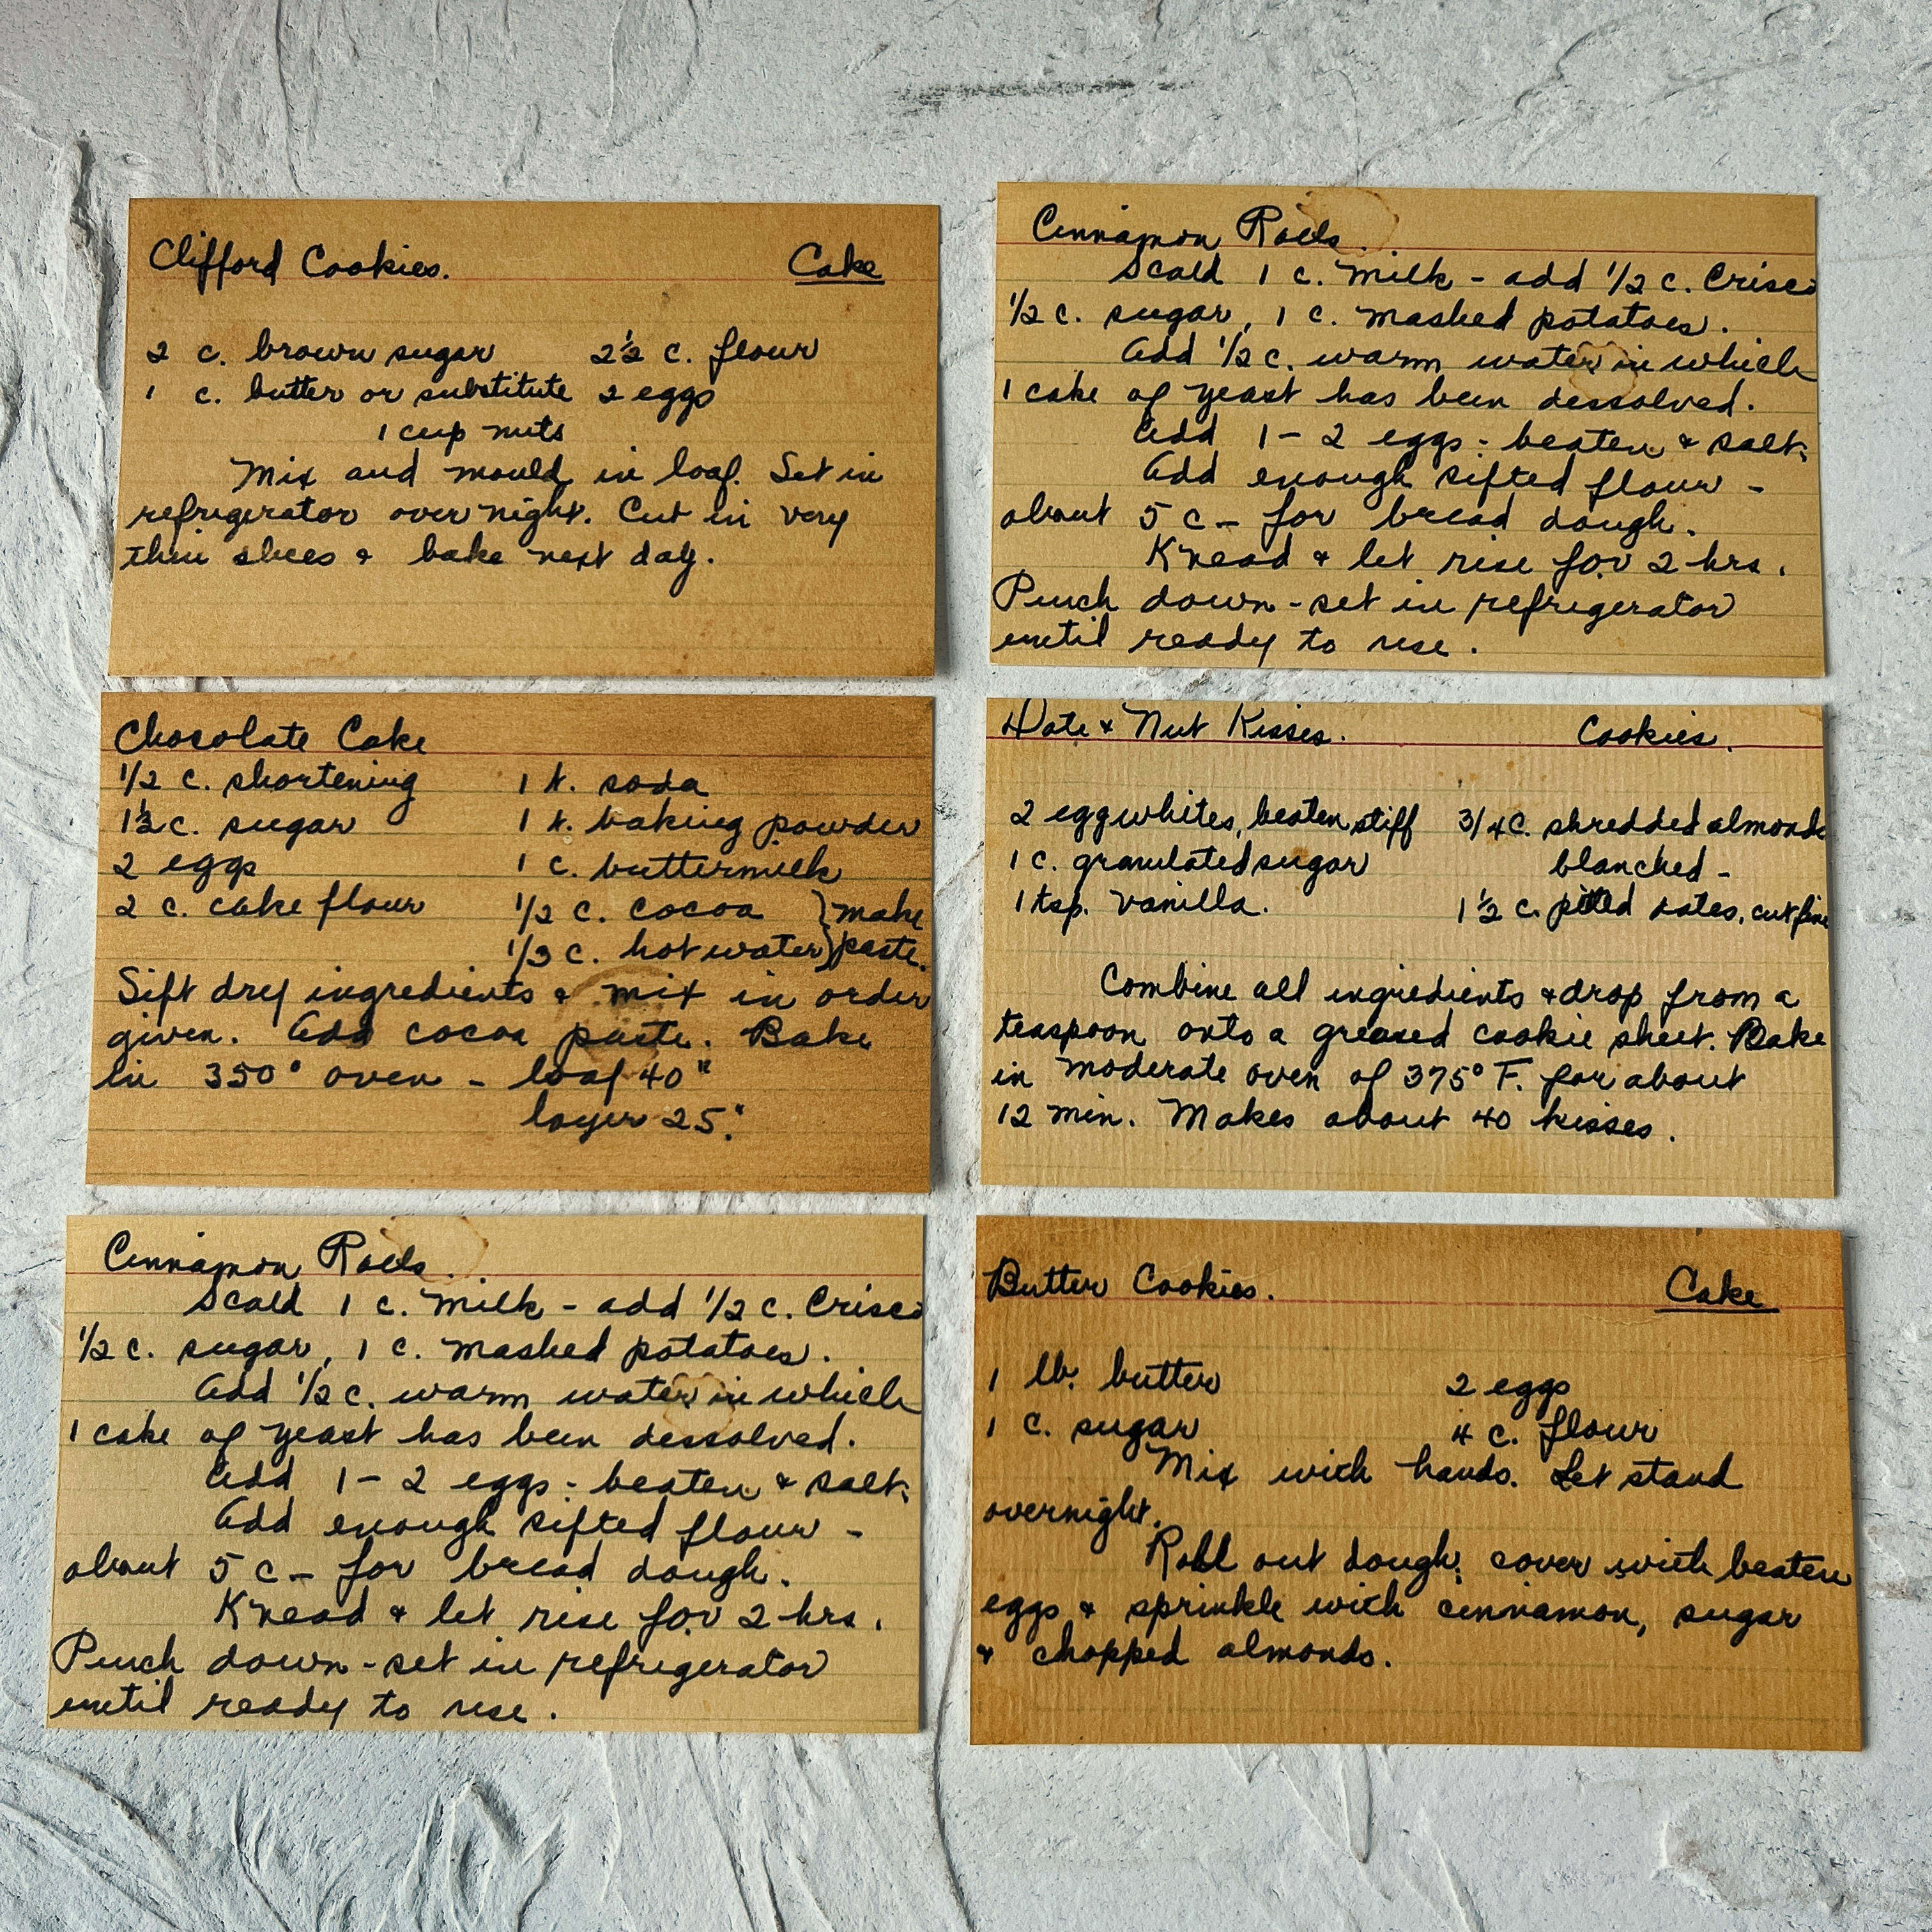 Clifford Cookies. Cake
2 c. brown sugar 2½ c. flour
1 c. butter or substitute 2 eggs
1 cup nuts
Mix and mould in loaf. Set in
refrigerator over night. Cut in very
thin slices & bake next day.
Cinnamon Rolls.
Scald 1 c. milk - add 1/2 c. Crisco
1/2 c. sugar, 1 c. mashed potatoes.
Add 1/2 c. warm water in which
1 cake of yeast has been dessolved.
Add 1 - 2 eggs - beaten & salt.
Add enough sifted flour -
about 5 c - for bread dough.
Knead & let rise for 2 hrs.
Punch down - set in refrigerator
until ready to use.
Chocolate Cake
1/2 c. shortening 1 t. soda
1½ c. sugar 1 t. baking powder
2 eggs 1 c. buttermilk
2 c. cake flour 1/2 c. cocoa } make
1/3 c. hot water } paste.
Sift dry ingredients & mix in order
given. Add cocoa paste. Bake
in 350° oven - loaf 40"
layer 25"
Date & Nut Kisses. Cookies.
2 egg whites, beaten stiff 3/4 c. shredded almonds
1 c. granulated sugar blanched -
1 tsp. vanilla. 1½ c. pitted dates, cut fine
Combine all ingredients & drop from a
teaspoon onto a greased cookie sheet. Bake
in moderate oven of 375° F. for about
12 min. Makes about 40 kisses.
Cinnamon Rolls.
Scald 1 c. milk - add 1/2 c. Crisco
1/2 c. sugar, 1 c. mashed potatoes.
Add 1/2 c. warm water in which
1 cake of yeast has been dessolved.
Add 1 - 2 eggs - beaten & salt.
Add enough sifted flour -
about 5 c - for bread dough.
Knead & let rise for 2 hrs.
Punch down - set in refrigerator
until ready to use.
Butter Cookies. Cake
1 lb. butter 2 eggs
1 c. sugar 4 c. flour
Mix with hands. Let stand
overnight.
Roll out dough; cover with beaten
eggs & sprinkle with cinnamon, sugar
& chopped almonds.